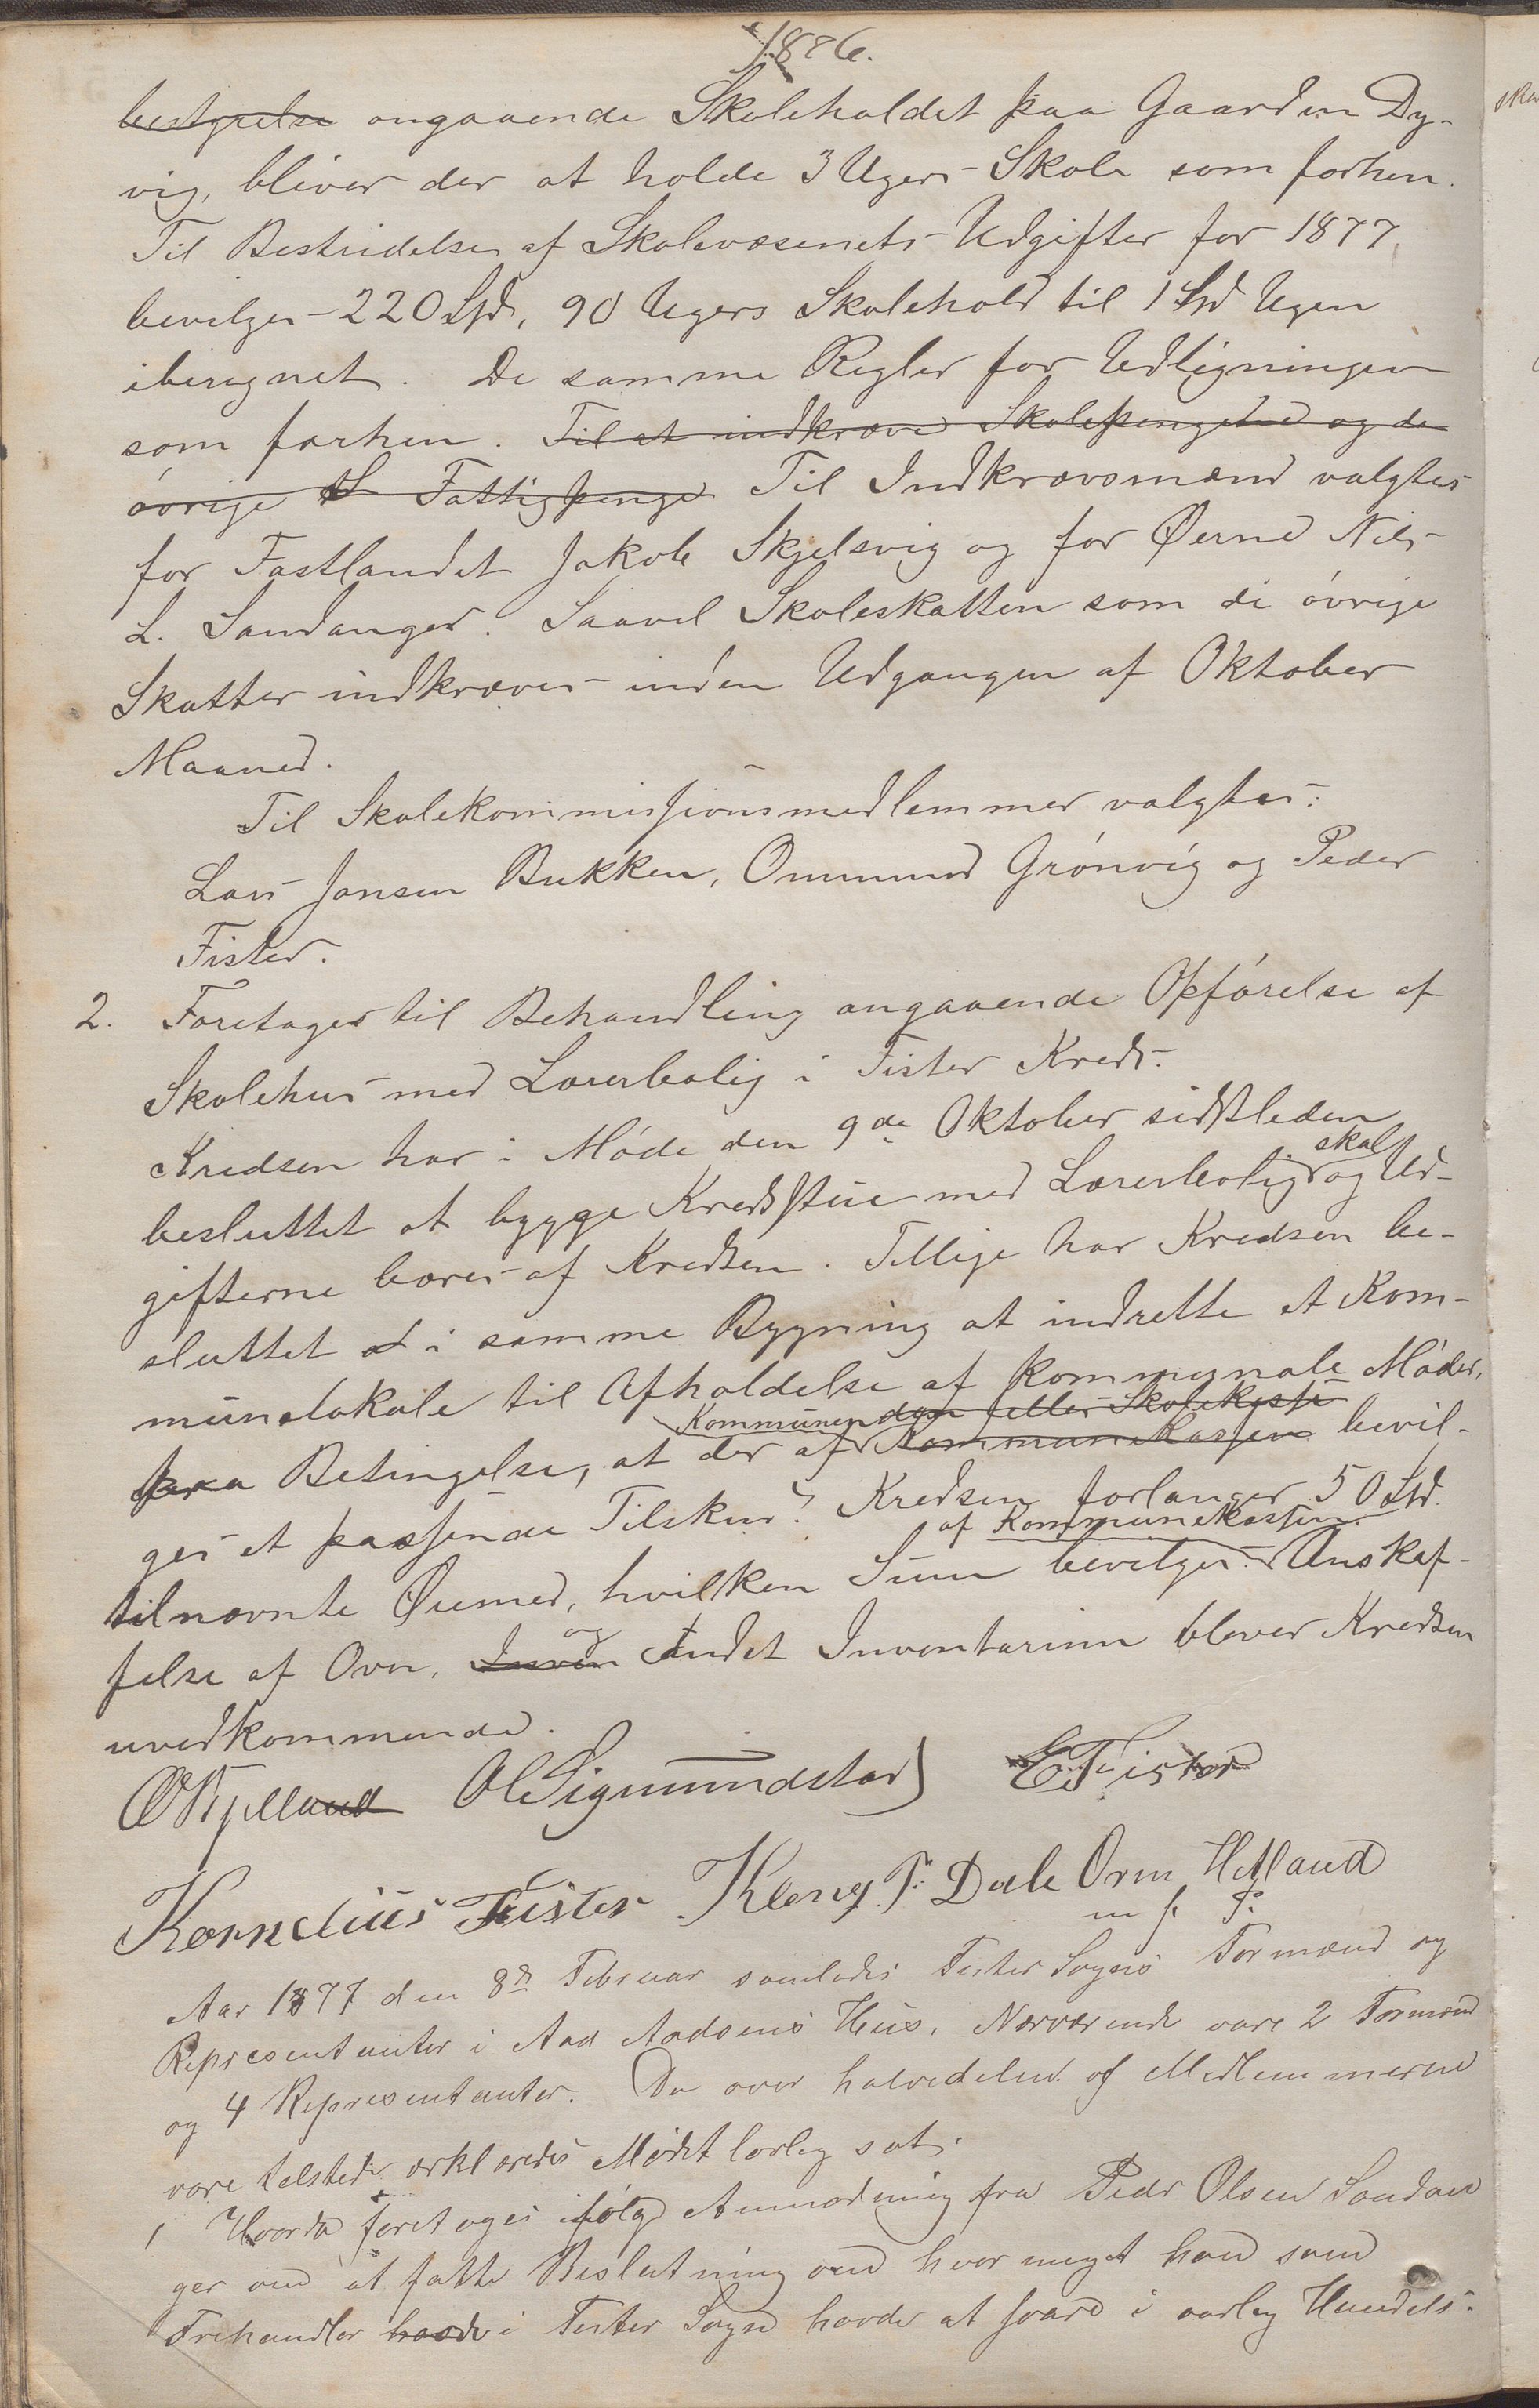 1876.
bestyrelse angaaende Skoleholdet paa Gaarden Dy-
vig, bliver der at holde 3 Ugers Skole som forhen.
Til Bestridelse af Skolevæsenets Udgifter for 1877
bevilges 220 Spd, 90 Ugers Skolehold til 1 Spd Ugen
iberegnet. De samme Regler for Udligningen
som forhen. Til at indkræve Skolepengene og de
øvrige Fattigpenge Til Indkrævsmænd valgtes
for Fastlandet Jakob Skjelsvig og for Øerne Nils
L. Sandanger. Saavel Skoleskatten som de øvrige
Skatter indkræves inden Udgangen af Oktober
Maaned.
Til Skolekommissionsmedlemmer valgtes:
Lars Jansen Bukken, Ommund Grønvig og Peder
Fister.
2. Foretages til Behandling angaaende Opførelse af
Skolehus med Lærerbolig i Fister Kreds.
Kredsen har i Møde den 9de Oktober sidstleden
besluttet at bygge Kredsstue med Lærerbolig og skal Ud-
gifterne bæres af Kredsen. Tillige har Kredsen be-
sluttet i samme Bygning at indrette et Kom-
munelokale til Afholdelse af kommunale Møder,
Kommunen den eller Skolekasse
paa Betingelse, at der af Kommunekassen bevil-
ges et passende Tilskud. Kredsen forlanger 50 Spd.
af Kommunekassen.
tilnævnte Øiemed, hvilken Sum bevilges. Anskaf-
felse af Ovn, og andet Inventarium bliver Kredsen
uvedkommende.
OKjelland Ol Sigmundstad E Fister
Kornelius Fister Kleng P. Dale Orm Hetland
m f P.
Aar 1877 den 8de Februar samledes Fister Sogns Formænd og
Representanter i Aad Aadsens Hus. Nærværende vare 2 Formænd
og 4 Representanter. Da over halvedelen af Medlemmerne
vare tilstede erklæredes Mødet lovlig sat.
1 Hvorda foretoges ifølge Anmodning fra Peder Olsen Sandan
ger om at fatte Beslutning om hvor meget han som
Frihandler havde i Fister Sogn havde at svare i aarlig Handels-